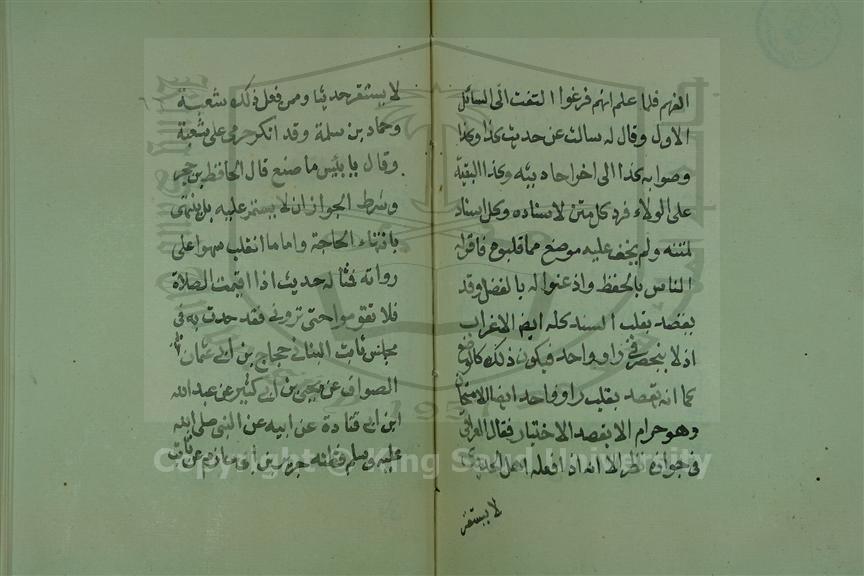 الفهم فلما علم انهم فرغوا التفت الى السائل
الاول وقال له سالت عن حديث كذا وكذا
وصوابه كذا الى اخر احاديثه وكذا البقية
على الولاء فرد كل متن لاسناده وكل اسناد
لمتنه ولم يخف عليه موضع مما قلبوه فاقر له
الناس بالحفظ واذعنوا له بالفضل وقد
يقصد بقلب السند كله ايضا الاغراب
اذ لا ينحصر في راو واحد فيكون ذلك كالوضع
كما انه يقصد بقلب راو واحد ايضا الامتحان
وهو حرام الا بقصد الاختبار فقال العراقي
في جوازه نظر الا انه اذا فعله اهل الحديث
لا يستقر
لا يستقر حديثا وممن فعل ذلك شعبة
وحماد بن سلمة وقد انكر حرمي على شعبة
وقال يا بئس ما صنع قال الحافظ بن حجر
وشرط الجواز ان لا يستمر عليه بل ينتهى
بانتهاء الحاجة واما ما انقلب سهوا على
رواته فمثاله حديث اذا اقيمت الصلاة
فلا تقوموا حتى تروني فقد حدث به في
مجلس ثابت البناني حجاج بن ابي عثمان
الصواف عن يحيى بن ابي كثير عن عبد الله
ابن ابي قتادة عن ابيه عن النبي صلى الله
عليه وسلم فظنه جرير بن حازم عن ثابت
Copyright © King Saud University
1957